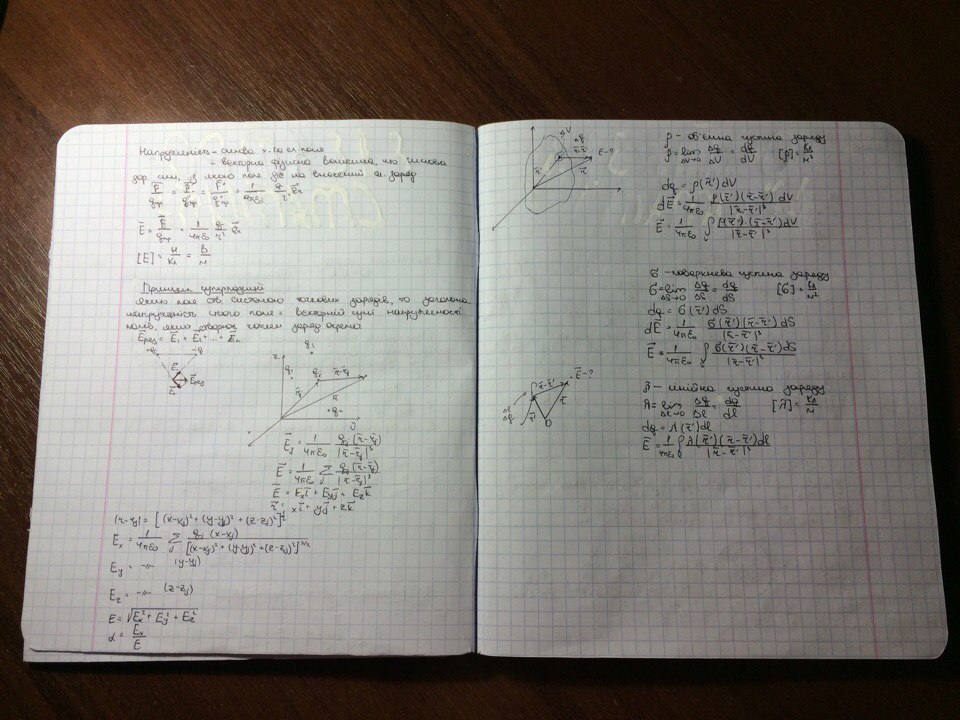 Напруженість – силова х-ка ел. поля
– векторна фізична величина, що чисельно
дор. силі, з якою поле діє на внесений од. заряд
E⃗ = F⃗/qпр = 1/4πε₀ q/r² e⃗r
[E] = Н/Кл = В/м
Принцип суперпозиції
Якщо поле ств. системою точкових зарядів, то загальна
напруженість цього поля = векторній сумі напруженостей
полів, якщо створює кожен заряд окремо.
E⃗рез = E⃗₁ + E⃗₂ + ... + E⃗n
E⃗рез
r⃗ - r⃗j
E⃗j = 1/4πε₀ qj(r⃗ - r⃗j)/|r⃗ - r⃗j|³
E⃗ = 1/4πε₀ Σj qj(r⃗ - r⃗j)/|r⃗ - r⃗j|³
E⃗ = Exi⃗ + Eyj⃗ + Ezk⃗
r⃗ = xi⃗ + yj⃗ + zk⃗
|r - rj| = [(x-xj)² + (y-yj)² + (z-zj)²]^1/2
Ex = 1/4πε₀ Σj qj(x-xj)/[(x-xj)² + (y-yj)² + (z-zj)²]^3/2
Ey = -//- (y-yj)
Ez = -//- (z-zj)
E = √(Ex² + Ey² + Ez²)
α = Ex/E
ΔV
Δq
r⃗ - r⃗'
E - ?
r⃗'
r⃗
ρ – об'ємна густина заряду
ρ = lim ΔV→0 Δq/ΔV = dq/dV [ρ] = Кл/м³
dq = ρ(r⃗')dV
dE⃗ = 1/4πε₀ ρ(r⃗')(r⃗ - r⃗')dV/|r⃗ - r⃗'|³
E⃗ = 1/4πε₀ ∫ ρ(r⃗')(r⃗ - r⃗')dV/|r⃗ - r⃗'|³
σ – поверхнева густина заряду
σ = lim ΔS→0 Δq/ΔS = dq/dS [σ] = Кл/м²
dq = σ(r⃗')dS
dE⃗ = 1/4πε₀ σ(r⃗')(r⃗ - r⃗')dS/|r⃗ - r⃗'|³
E⃗ = 1/4πε₀ ∫ σ(r⃗')(r⃗ - r⃗')dS/|r⃗ - r⃗'|³
E⃗ - ?
r⃗ - r⃗'
Δl
Δq
r⃗'
r⃗
0
λ – лінійна густина заряду
λ = lim Δl→0 Δq/Δl = dq/dl [λ] = Кл/м
dq = λ(r⃗')dl
E⃗ = 1/4πε₀ ∫ λ(r⃗')(r⃗ - r⃗')dl/|r⃗ - r⃗'|³